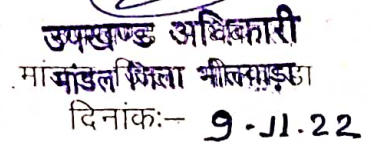 उपखण्ड अधिकारी
मांडल जिला भीलवाड़ा
दिनांक:- 9-11-22